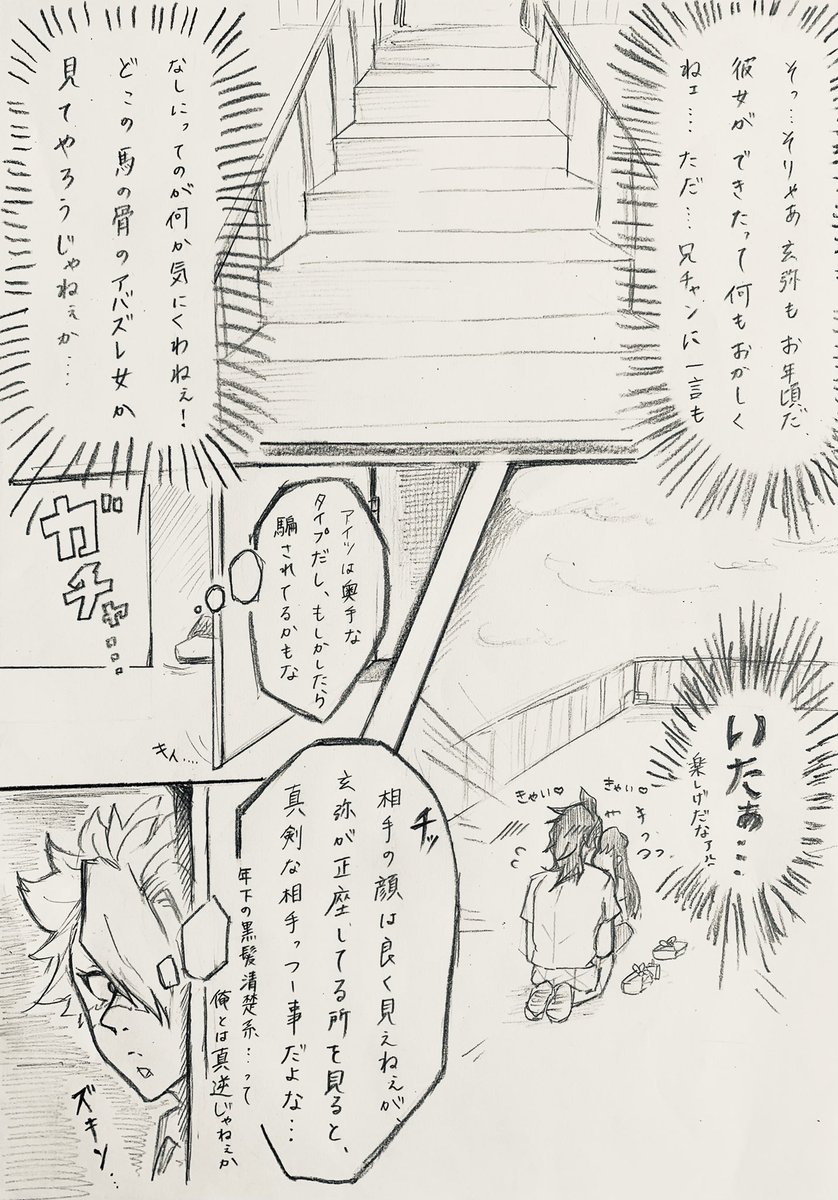 そっ…そりゃあ玄弥もお年頃だ、
彼女ができたって何もおかしく
ねェ…ただ…兄チャンに一言も
なしにってのが何か気にくわねぇ！
どこの馬の骨のアバズレ女か
見てやろうじゃねぇか…
アイツは奥手な
タイプだし、もしかしたら
騙されてるかもな
ガチャ…
キィ…
いたぁ…
楽しげだなァ
きゃい♡
きゃい♡
チッ
相手の顔は良く見えねぇが、
玄弥が正座してる所を見ると、
真剣な相手っつー事だよな…
年下の黒髪清楚系…って
俺とは真逆じゃねぇか
ズキン…